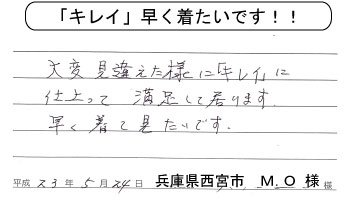 「キレイ」早く着たいです！！
大変見違えた様に「キレイ」に
仕上って 満足して居ります.
早く着て見たいです.
平成23年5月24日 兵庫県西宮市 M.O 様 様